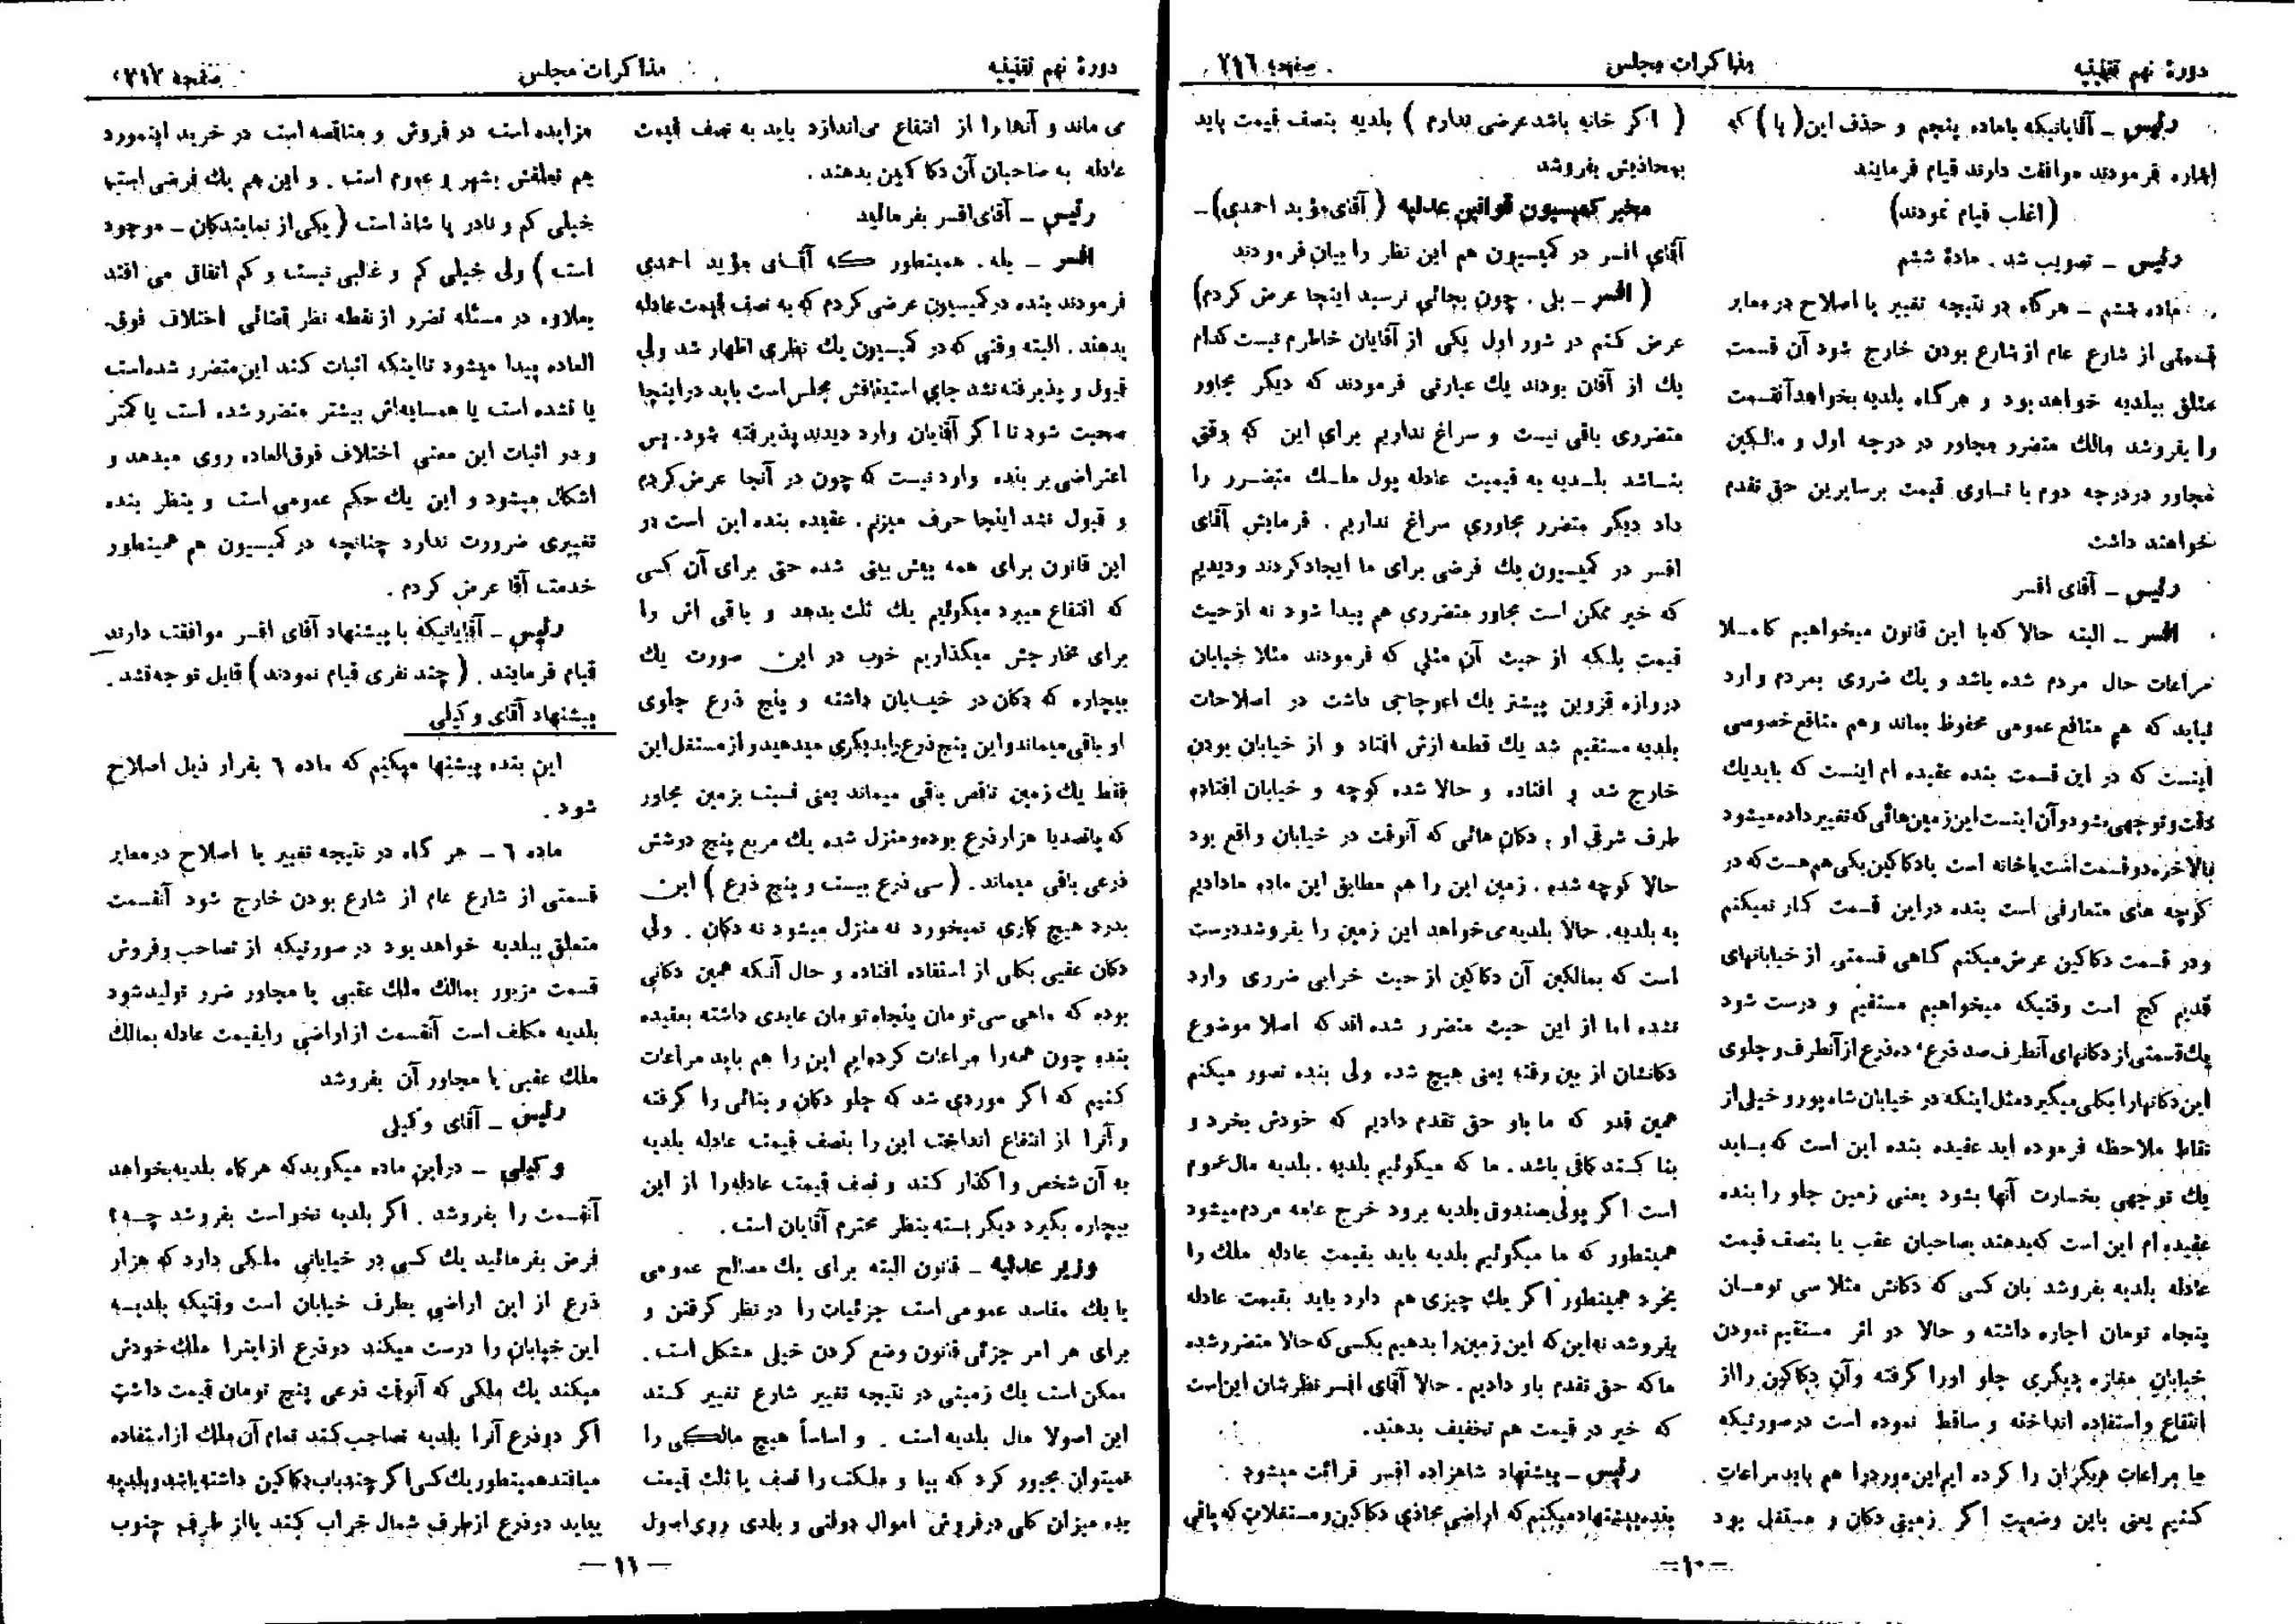 دورهٔ نهم تقنینیه
مذاکرات مجلس
صفحه ۷۱۶
رئیس ـ آقایانیکه باماده پنجم و حذف این (یا) که
اشاره فرمودند موافقت دارند قیام فرمایند
(اغلب قیام نمودند)
رئیس ـ تصویب شد . مادهٔ ششم
ماده ششم ـ هر گاه در نتیجه تغییر یا اصلاح در معابر
قسمتی از شارع عام از شارع بودن خارج شود آن قسمت
متعلق ببلدیه خواهد بود و هر گاه بلدیه بخواهد آنقسمت
را بفروشد مالك متضرر مجاور در درجه اول و مالکین
مجاور در درجه دوم با تساوی قیمت بر سایرین حق تقدم
خواهند داشت
رئیس ـ آقای افسر
افسر ـ البته حالا که با این قانون میخواهیم کاملا
مراعات حال مردم شده باشد و یك ضرری بمردم وارد
نیاید که هم منافع عمومی محفوظ بماند و هم منافع خصوصی
اینست که در این قسمت بنده عقیده ام اینست که باید یك
دقت و توجهی بشود و آن اینست این زمین هائی که تغییر داده میشود
بالاخره دو قسمت است یا خانه است یا دکاکین یکی هم هست که در
کوچه های متعارفی است بنده در این قسمت کار نمیکنم
و در قسمت دکاکین عرض میکنم گاهی قسمتی از خیابانهای
قدیم کج است وقتیکه میخواهیم مستقیم و درست شود
یك قسمتی از دکانهای آنطرف صد ذرع ، ده ذرع از آنطرف و جلوی
این دکانها را بکلی میگیرد مثل اینکه در خیابان شاه پور و خیلی از
نقاط ملاحظه فرموده اید عقیده بنده این است که باید
یك توجهی بخسارت آنها بشود یعنی زمین جلو را بنده
عقیده ام این است که بدهند بصاحبان عقب یا بنصف قیمت
عادله بلدیه بفروشد بان کسی که دکانش مثلا سی تومان
پنجاه تومان اجاره داشته و حالا در اثر مستقیم نمودن
خیابان مغازه دیگری جلو اورا گرفته و آن دکاکین را از
انتفاع و استفاده انداخته و ساقط نموده است در صورتیکه
ما مراعات دیگران را کرده ایم این مورد را هم باید مراعات
کنیم یعنی باین وضعیت اگر زمینی دکان و مستغل بود
( اگر خانه باشد عرضی ندارم ) بلدیه بنصف قیمت باید
بمحاذیش بفروشد
مخبر کمیسیون قوانین عدلیه ( آقای مؤید احمدی) ـ
آقای افسر در کمیسیون هم این نظر را بیان فرمودند
( افسر ـ بلی . چون بجائی نرسید اینجا عرض کردم )
عرض کنم در شور اول یکی از آقایان خاطرم نیست کدام
یك از آقایان بودند یك عبارتی فرمودند که دیگر مجاور
متضرری باقی نیست و سراغ نداریم برای این که وقتی
بنا شد بلدیه به قیمت عادله پول ملك متضرر را
داد دیگر متضرر مجاوری سراغ نداریم . فرمایش آقای
افسر در کمیسیون یك فرضی برای ما ایجاد کردند و دیدیم
که خیر ممکن است مجاور متضرری هم پیدا شود نه از حیث
قیمت بلکه از حیث آن مثلی که فرمودند مثلا خیابان
دروازه قزوین پیشتر یك اعوجاجی داشت در اصلاحات
بلدیه مستقیم شد یك قطعه ازش افتاد و از خیابان بودن
خارج شد و افتاده و حالا شده کوچه و خیابان افتاده
طرف شرقی او ، دکان هائی که آنوقت در خیابان واقع بود
حالا کوچه شده . زمین این را هم مطابق این ماده ما دادیم
به بلدیه . حالا بلدیه می خواهد این زمین را بفروشد درست
است که بمالکین آن دکاکین از حیث خرابی ضرری وارد
نشده اما از این حیث متضرر شده اند که اصلا موضوع
دکانشان از بین رفته یعنی هیچ شده ولی بنده تصور میکنم
همین قدر که ما باو حق تقدم دادیم که خودش بخرد و
بنا کند کافی باشد . ما که میگوئیم بلدیه . بلدیه مال عموم
است اگر پولی بصندوق بلدیه برود خرج عامه مردم میشود
همینطور که ما میگوئیم بلدیه باید بقیمت عادله ملك را
بخرد همینطور اگر یك چیزی هم دارد باید بقیمت عادله
بفروشد نه این که این زمین را بدهیم بکسی که حالا متضرر شده
ما که حق تقدم باو دادیم . حالا آقای افسر نظرشان این است
که خیر در قیمت هم تخفیف بدهند .
رئیس ـ پیشنهاد شاهزاده افسر قرائت میشود :
بنده پیشنهاد میکنم که اراضی محاذی دکاکین و مستغلات که باقی
ـ ۱۰ ـ
دورهٔ نهم تقنینیه
مذاکرات مجلس
صفحه ۷۱۷
می ماند و آنها را از انتفاع می اندازد باید به نصف قیمت
عادله به صاحبان آن دکاکین بدهند .
رئیس ـ آقای افسر بفرمائید
افسر ـ بله . همینطور که آقای مؤید احمدی
فرمودند بنده در کمیسیون عرض کردم که به نصف قیمت عادله
بدهند . البته وقتی که در کمیسیون یك نظری اظهار شد ولی
قبول و پذیرفته نشد جای استینافش مجلس است باید در اینجا
صحبت شود تا اگر آقایان وارد دیدند پذیرفته شود . پس
اعتراضی بر بنده وارد نیست که چون در آنجا عرض کردم
و قبول نشد اینجا حرف میزنم . عقیده بنده این است در
این قانون برای همه پیش بینی شده حتی برای آن کسی
که انتفاع میبرد میگوئیم یك ثلث بدهد و باقی اش را
برای مخارجش میگذاریم خوب در این صورت یك
بیچاره که دکان در خیابان داشته و پنج ذرع جلوی
او باقی میماند و این پنج ذرع را بدیگری میدهید و از مستغل این
فقط یك زمین ناقص باقی میماند یعنی نسبت بزمین مجاور
که پانصد یا هزار ذرع بوده و منزل شده یك مربع پنج در شش
ذرعی باقی میماند . ( سی ذرع بیست و پنج ذرع ) این
بدرد هیچ کاری نمیخورد نه منزل میشود نه دکان . ولی
دکان عقبی بکلی از استفاده افتاده و حال آنکه همین دکانی
بوده که ماهی سی تومان پنجاه تومان عایدی داشته بعقیده
بنده چون همه را مراعات کرده ایم این را هم باید مراعات
کنیم که اگر موردی شد که جلو دکان و بنائی را گرفته
و آنرا از انتفاع انداخت این را بنصف قیمت عادله بلدیه
به آن شخص واگذار کند و نصف قیمت عادله را از این
بیچاره بگیرد دیگر بسته بنظر محترم آقایان است .
وزیر عدلیه ـ قانون البته برای یك مصالح عمومی
یا یك مفاسد عمومی است جزئیات را در نظر گرفتن و
برای هر امر جزئی قانون وضع کردن خیلی مشکل است .
ممکن است یك زمینی در نتیجه تغییر شارع تغییر کند
این اصولا مال بلدیه است . و اساساً هیچ مالکی را
نمیتوان مجبور کرد که بیا و ملکت را نصف یا ثلث قیمت
بده میزان کلی در فروش اموال دولتی و بلدی روی اصول
مزایده است در فروش و مناقصه است در خرید اینمورد
هم تعلقش بشهر و عموم است . و این هم یك فرضی است
خیلی کم و نادر یا شاذ است ( یکی از نمایندکان ـ موجود
است ) ولی خیلی کم و غالبی نیست و کم اتفاق می افتد
بعلاوه در مسئله تضرر از نقطه نظر قضائی اختلاف فوق
العاده پیدا میشود تا اینکه اثبات کند این متضرر شده است
یا نشده است یا همسایه اش بیشتر متضرر شده است یا کمتر
و در اثبات این معنی اختلاف فوق العاده روی میدهد و
اشکال میشود و این یك حکم عمومی است و بنظر بنده
تغییری ضرورت ندارد چنانچه در کمیسیون هم همینطور
خدمت آقا عرض کردم .
رئیس ـ آقایانیکه با پیشنهاد آقای افسر موافقت دارند
قیام فرمایند . ( چند نفری قیام نمودند ) قابل توجه نشد .
پیشنهاد آقای وکیلی
این بنده پیشنهاد میکنم که ماده ٦ بقرار ذیل اصلاح
شود .
ماده ٦ ـ هر گاه در نتیجه تغییر یا اصلاح در معابر
قسمتی از شارع عام از شارع بودن خارج شود آنقسمت
متعلق ببلدیه خواهد بود در صورتیکه از تصاحب و فروش
قسمت مزبور بمالك ملك عقبی یا مجاور ضرر تولید شود
بلدیه مکلف است آنقسمت از اراضی را بقیمت عادله بمالك
ملك عقبی یا مجاور آن بفروشد
رئیس ـ آقای وکیلی
وکیلی ـ در این ماده میگوید که هر گاه بلدیه بخواهد
آنقسمت را بفروشد . اگر بلدیه نخواست بفروشد چه ؟
فرض بفرمائید یك کسی در خیابانی ملکی دارد که هزار
ذرع از این اراضی بطرف خیابان است وقتیکه بلدیه
این خیابان را درست میکند دو ذرع از اینرا ملك خودش
میکند یك ملکی که آنوقت ذرعی پنج تومان قیمت داشت
اگر دو ذرع آنرا بلدیه تصاحب کند تمام آن ملك از استفاده
میافتد همینطور یك کسی اگر چند باب دکاکین داشته باشد و بلدیه
بیاید دو ذرع از طرف شمال خراب کند یا از طرف جنوب
ـ ۱۱ ـ